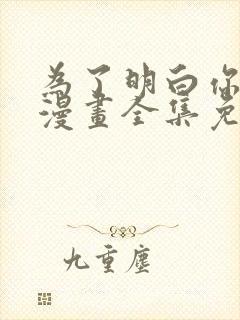 為了明白你
漫畫全集免
九重塵